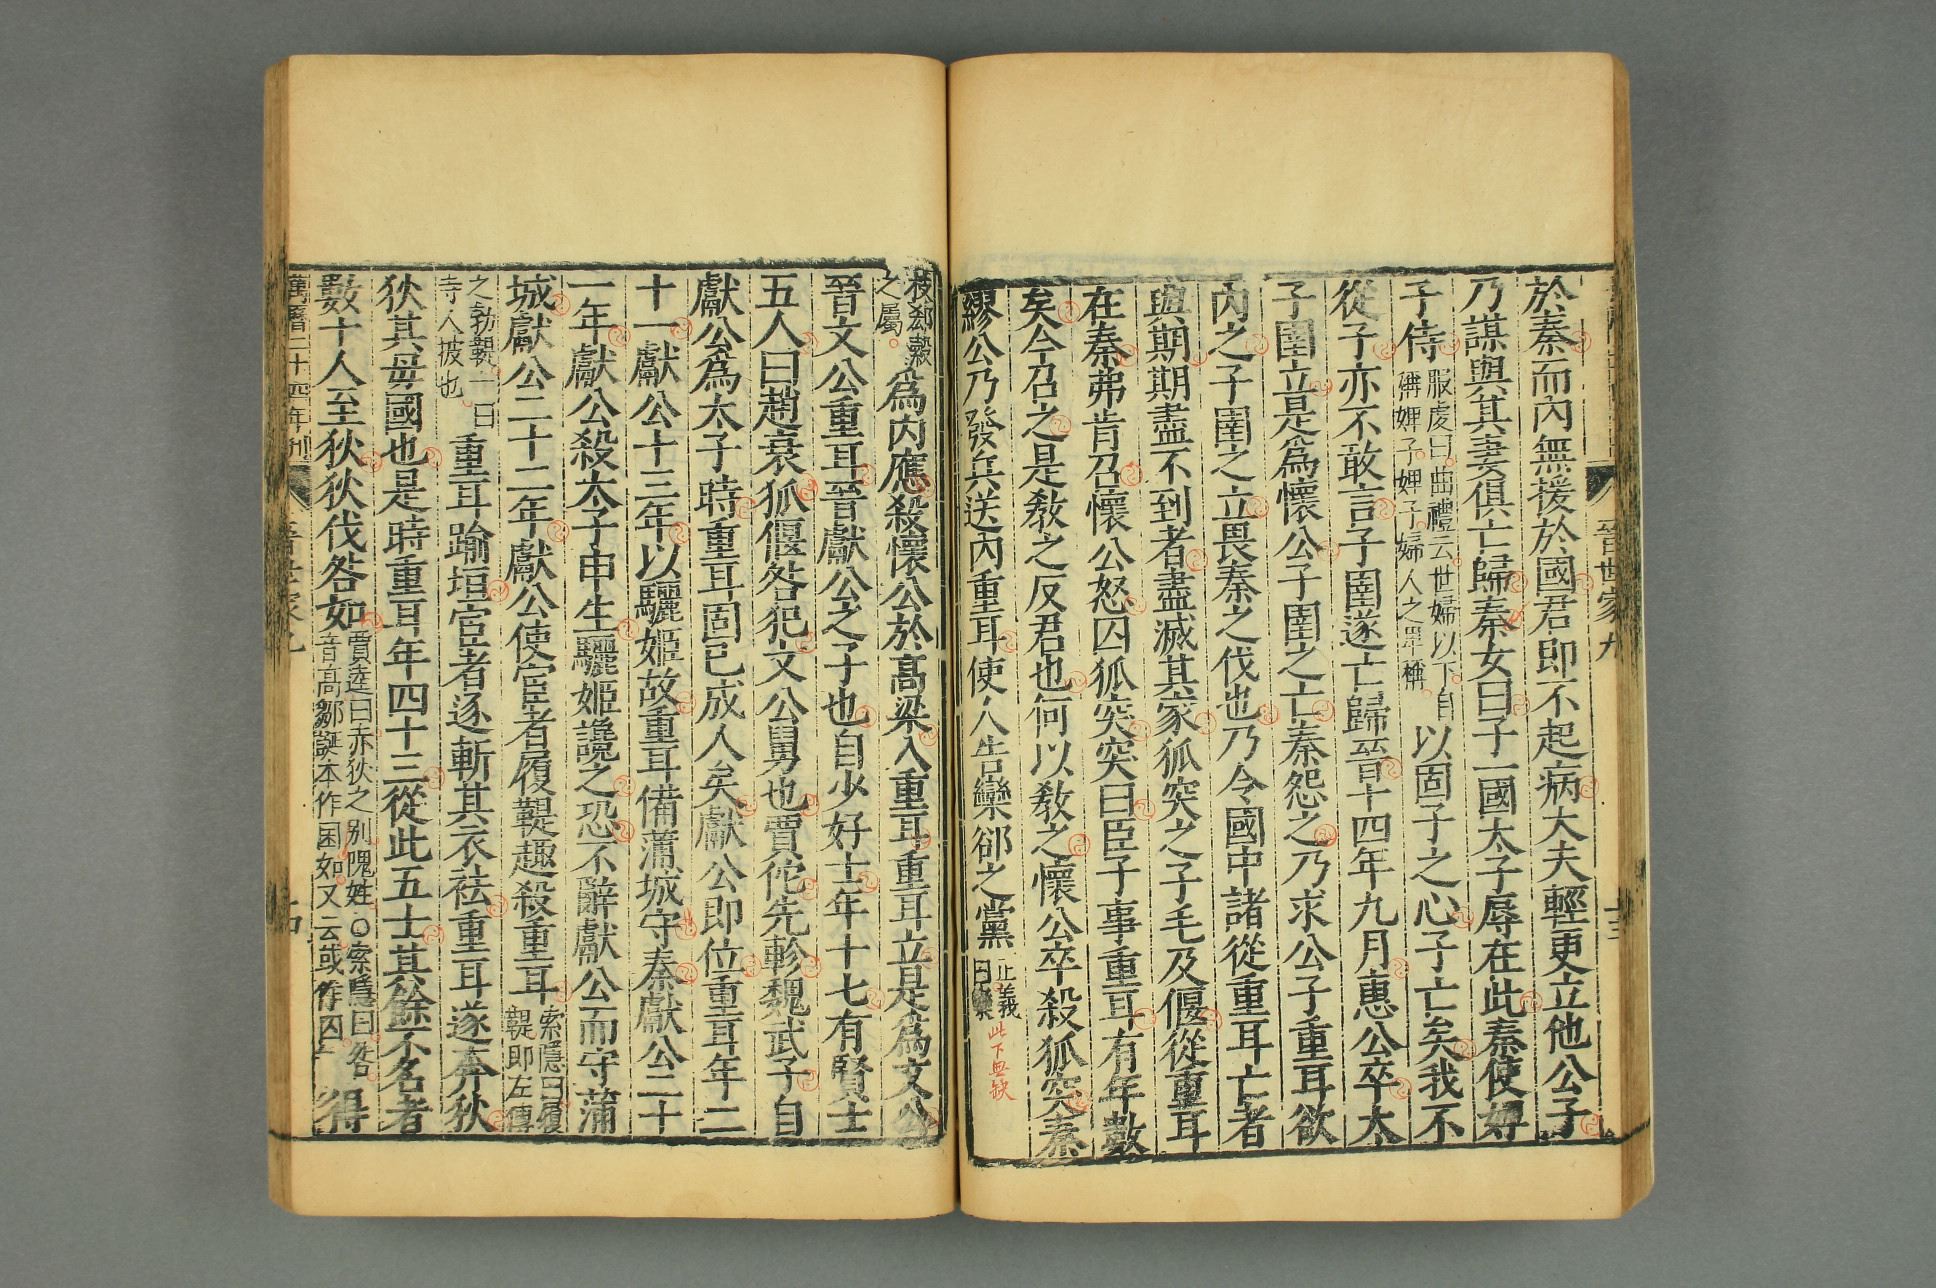 晉世家九
十三
於秦而內無援於國君即不起病大夫輕更立他公子
乃謀與其妻俱亡歸秦女曰子一國太子辱在此秦使婢
子侍服虔曰曲禮云世婦以下自稱婢子婢子婦人之卑稱以固子之心子亡矣我不
從子亦不敢言子圉遂亡歸晉十四年九月惠公卒太
子圉立是爲懷公子圉之亡秦怨之乃求公子重耳欲
內之子圉之立畏秦之伐也乃令國中諸從重耳亡者
與期期盡不到者盡滅其家狐突之子毛及偃從重耳
在秦弗肯召懷公怒囚狐突突曰臣子事重耳有年數
矣今召之是教之反君也何以教之懷公卒殺狐突秦
繆公乃發兵送內重耳使人告欒郤之黨正義曰欒
此下無缺
枝郤穀之屬爲內應殺懷公於高梁入重耳重耳立是爲文公
晉文公重耳晉獻公之子也自少好士年十七有賢士
五人曰趙衰狐偃咎犯文公舅也賈佗先軫魏武子自
獻公爲太子時重耳固已成人矣獻公即位重耳年二
十一獻公十三年以驪姬故重耳備蒲城守秦獻公二十
一年獻公殺太子申生驪姬讒之恐不辭獻公而守蒲
城獻公二十二年獻公使宦者履鞮趣殺重耳索隱曰履鞮即左傳
之勃鞮一曰寺人披也重耳踰垣宦者逐斬其衣袪重耳遂奔狄
狄其母國也是時重耳年四十三從此五士其餘不名者
數十人至狄狄伐咎如賈逵曰赤狄之别隗姓○索隱曰咎音高鄒誕本作困如又云或作囚得
萬曆二十四年刊
晉世家九
十四